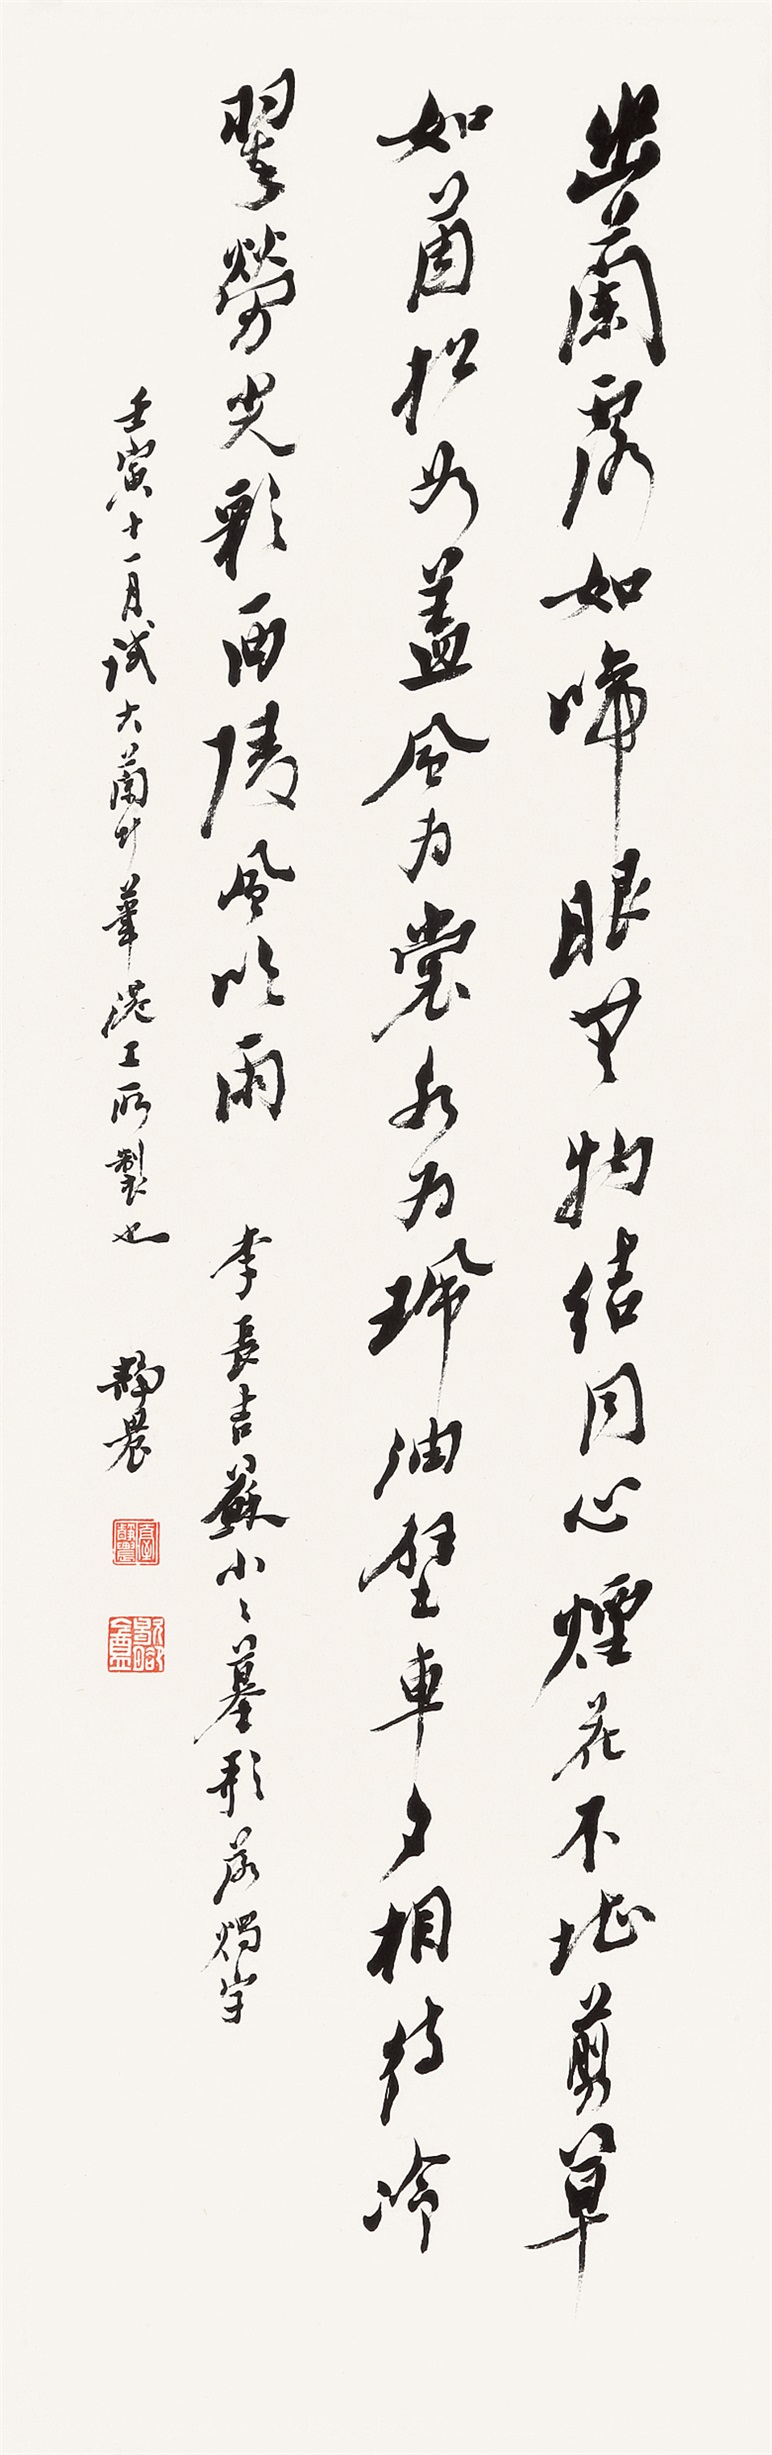 幽蘭露如啼眼無物結同心煙花不堪剪草
如茵松如蓋風為裳水為珮油壁車夕相待冷
翠勞光彩西陵風吹雨 李長吉蘇小〻墓彩落燭字
壬寅十一月試大蘭竹筆港工所製也 靜農
臺靜農